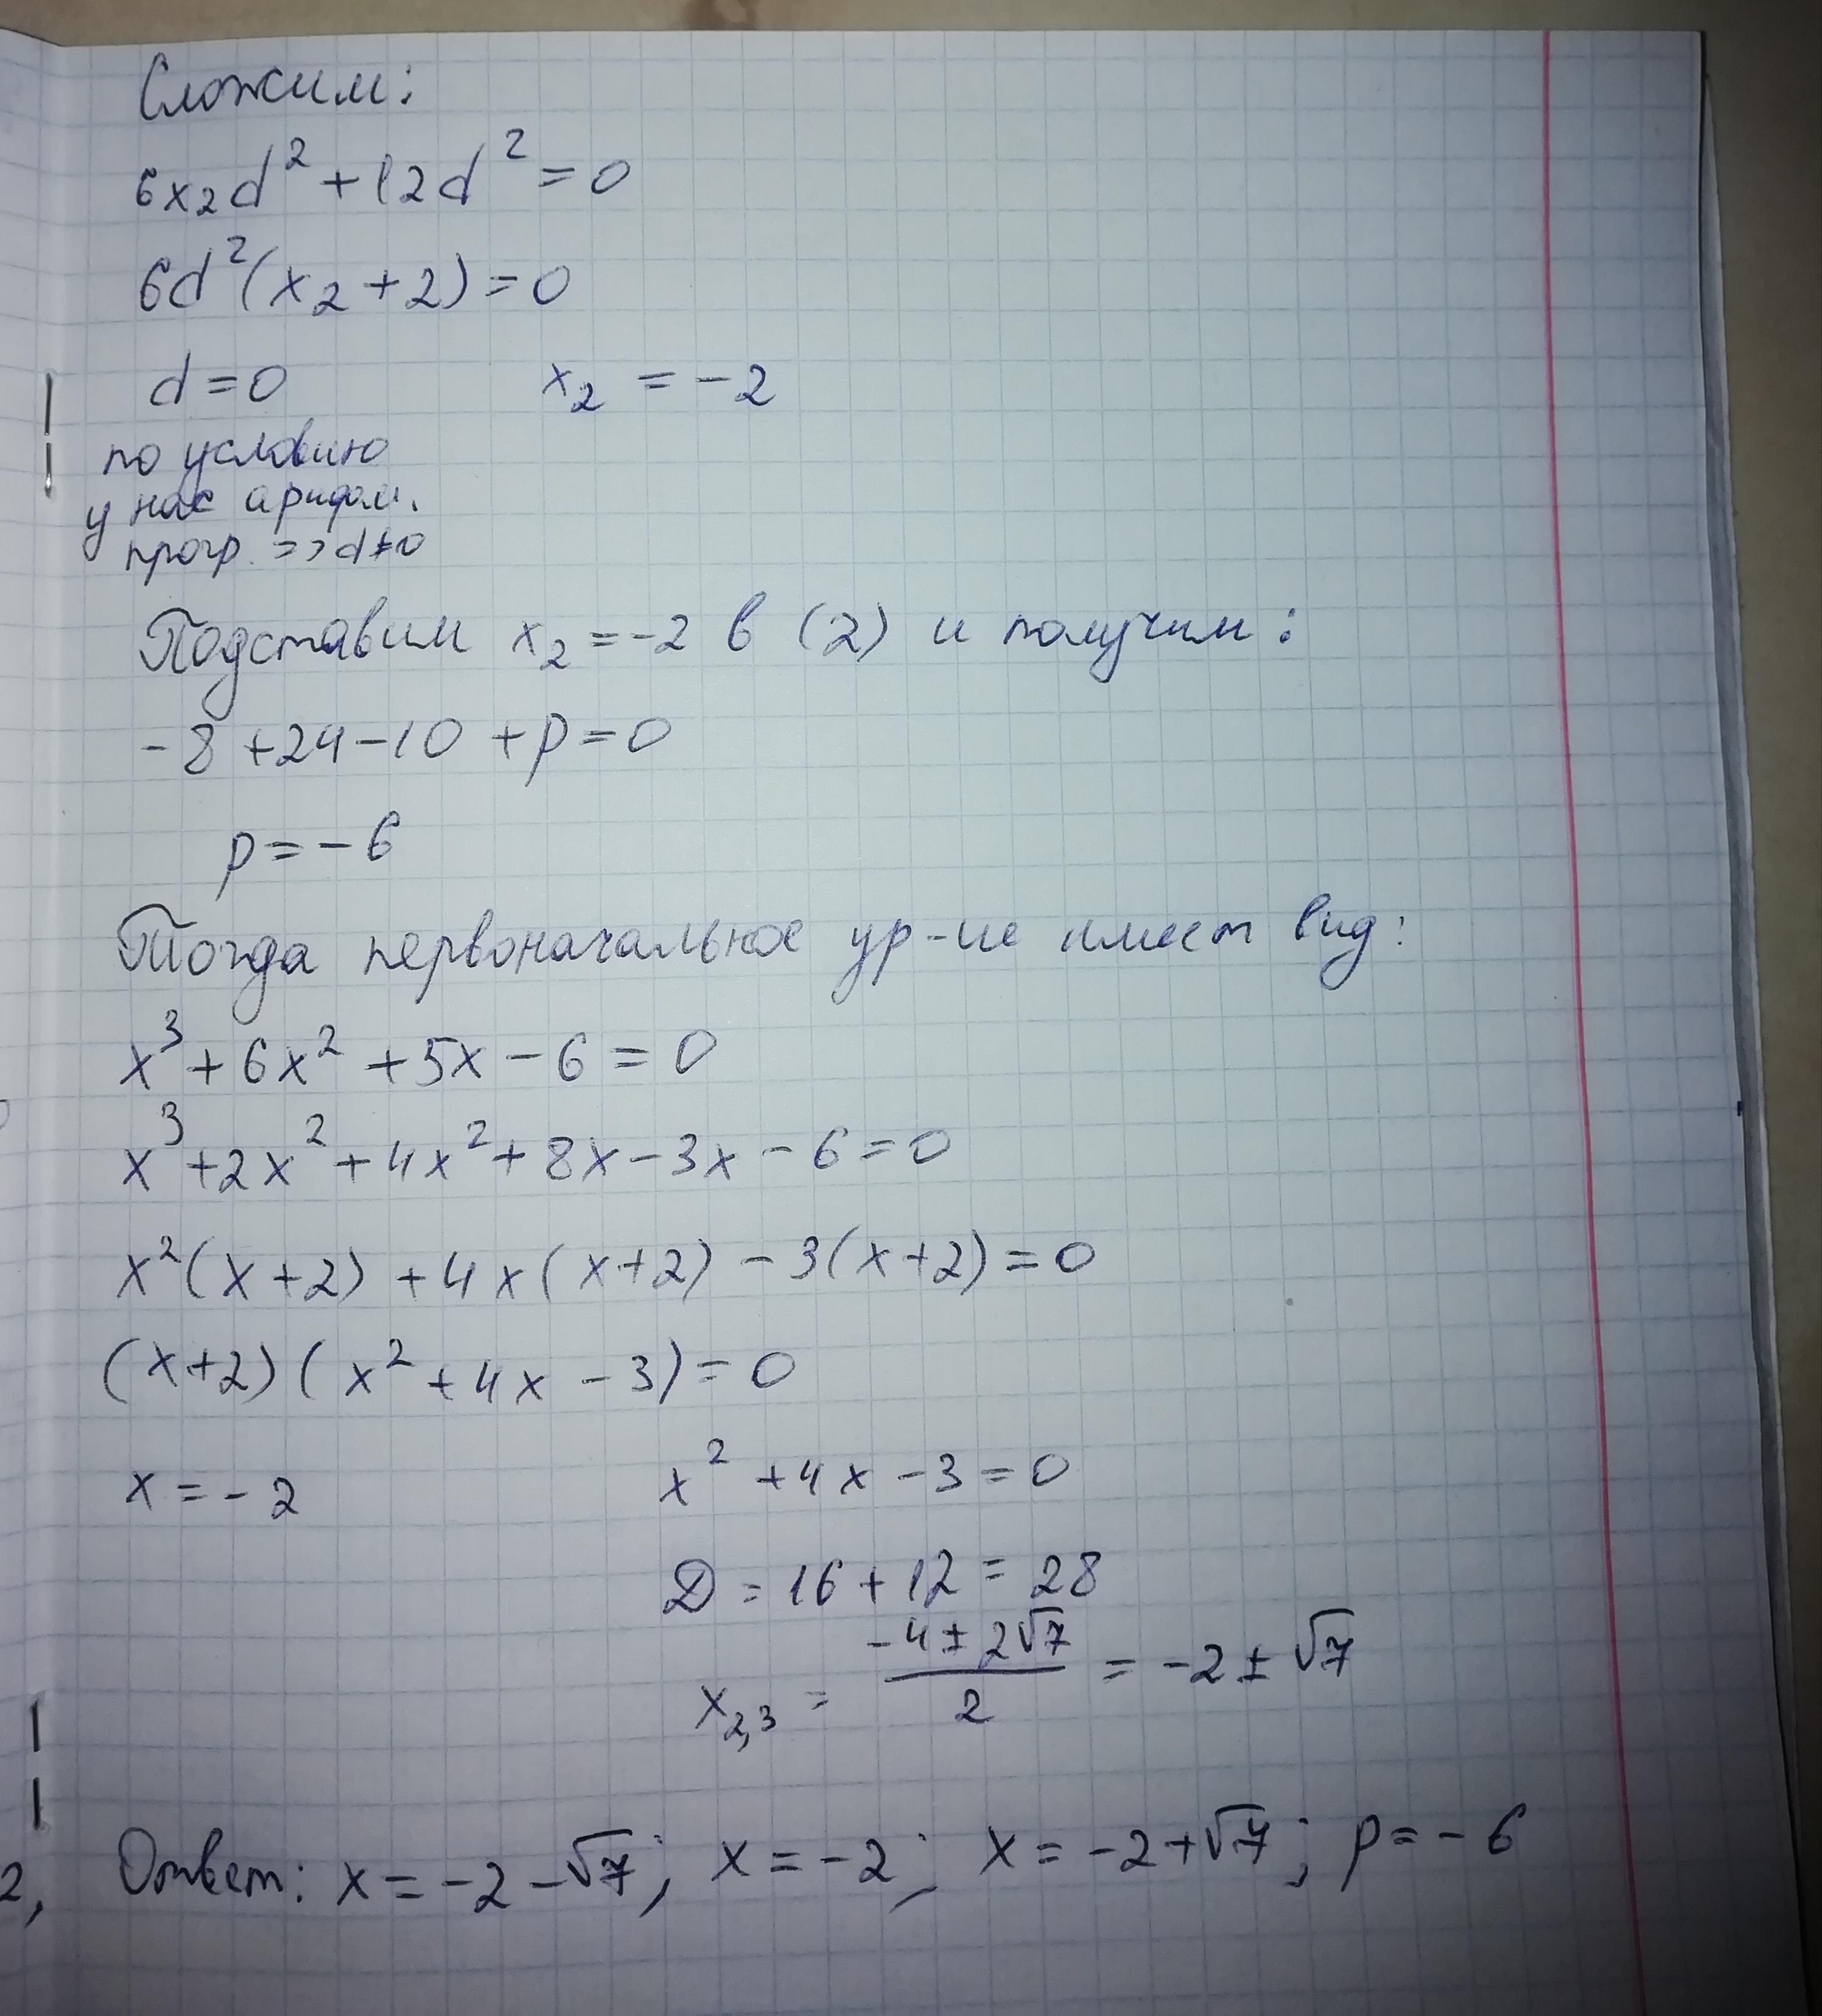 Сложим:
6x₂d² + 12d² = 0
6d²(x₂ + 2) = 0
d = 0 x₂ = -2
по условию
у нас арифм.
прогр. => d≠0
Подставим x₂ = -2 в (2) и получим:
-8 + 24 - 10 + p = 0
p = -6
Тогда первоначальное ур-ие имеет вид:
x³ + 6x² + 5x - 6 = 0
x³ + 2x² + 4x² + 8x - 3x - 6 = 0
x²(x+2) + 4x(x+2) - 3(x+2) = 0
(x+2)(x² + 4x - 3) = 0
x = -2 x² + 4x - 3 = 0
D = 16 + 12 = 28
x₂,₃ = (-4 ± 2√7)/2 = -2 ± √7
2, Ответ: x = -2 - √7; x = -2; x = -2 + √7; p = -6